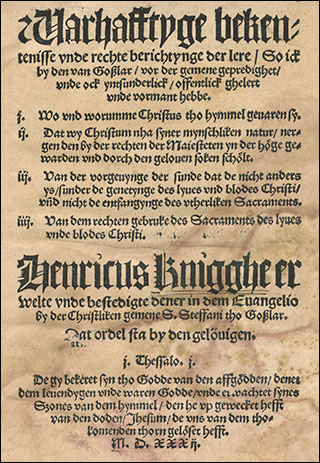 Warhafftyge beken-
tenisse vnde rechte berichtynge der lere / So ick
by den van Goßlar / vor der gemene gepredighet /
vnde ock ynsünderlick / offentlick ghelert
vnde vormant hebbe.
j. Wo vnd worumme Christus tho hymmel geuaren sy.
ij. Dat wy Christum nha syner mynschliken natur / ner-
gen den by der rechten der Maiesteten yn der höge ge-
warden vnd dorch den gelouen söken schölt.
iij. Van der vorgeuynge der sunde dat de nicht anders
ys / sunder de genetynge des lyues vnd blodes Christi /
vñ nicht de entfangynge des vtherliken Sacraments.
iiij. Van dem rechten gebruke des Sacraments des lyues
vnde blodes Christi.
Henricus Knigghe er
welte vnde bestedigte dener in dem Euangelio
by der Christliken gemene S. Steffani tho Goßlar.
Dat ordel sta by den gelöuigen.
j. Thessalo. j.
De gy bekeret syn tho Godde van den affgödden / denet
dem leuendygen vnde waren Godde / vnde erwachtet synes
Szones van dem hymmel / den he vp gewecket hefft
van den doden / Jhesum / de vns van dem tho-
komenden thorn gelöset hefft.
M. D. XXX ij.